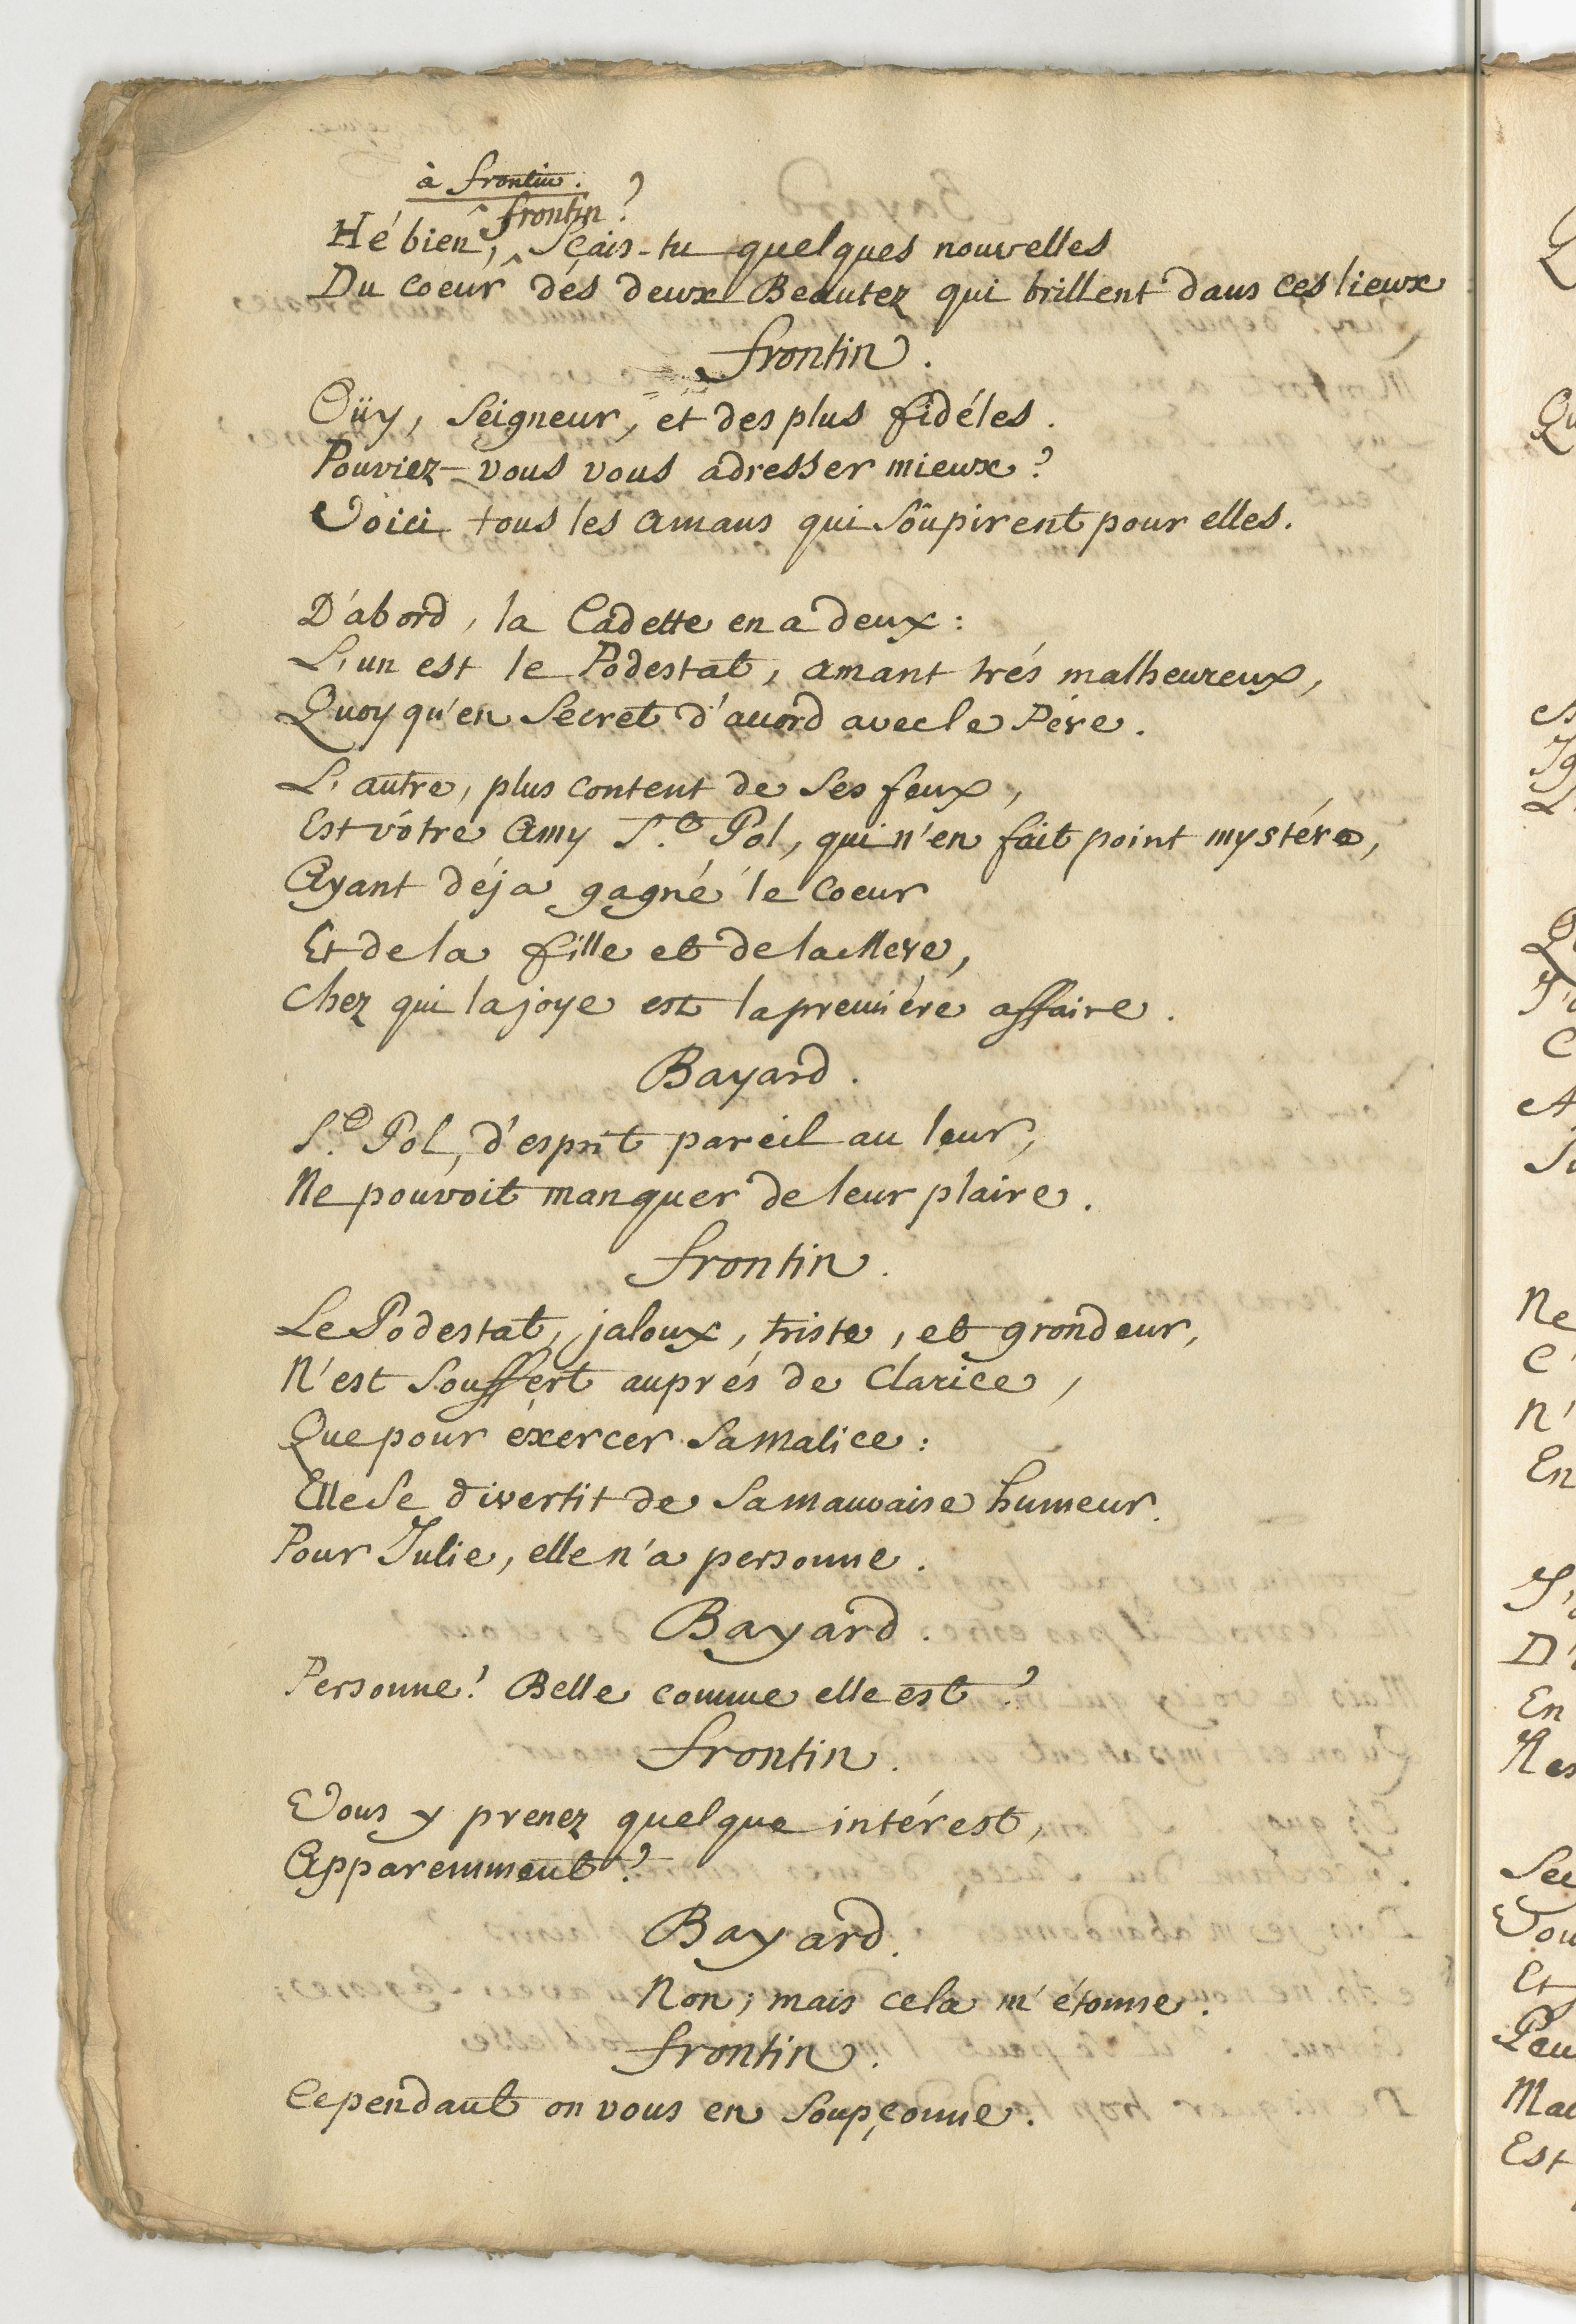 à frontin.
frontin ?
Hé bien, Sçais-tu quelques nouvelles
Du coeur des deux Beautez qui brillent dans ces lieux
frontin.
Oüy, Seigneur, et des plus fidéles.
Pouviez-vous vous adresser mieux ?
Voici tous les amans qui Soûpirent pour elles.
D'abord, la Cadette en a deux :
L'un est le Podestat, amant trés malheureux,
Quoy qu'en Secret d'accord avec le Pére.
L'autre, plus content de Ses feux,
Est vôtre Amy St. Pol, qui n'en fait point mystére,
Ayant déja gagné le Coeur
Et de la fille et de la Mere,
Chez qui la joye est la premiére affaire.
Bayard.
St. Pol, d'esprit pareil au leur,
Ne pouvoit manquer de leur plaire.
frontin.
Le Podestat, jaloux, triste, et grondeur,
N'est Souffert auprés de Clarice,
Que pour éxercer Sa Malice :
Elle Se divertit de Sa mauvaise humeur.
Pour Julie, elle n'a personne.
Bayard.
Personne ! Belle comme elle est ?
frontin.
Vous y prenez quelque intérest,
Apparemment ?
Bayard.
Non ; mais cela m'étonne.
frontin.
Cependant on vous en Soupçonne.